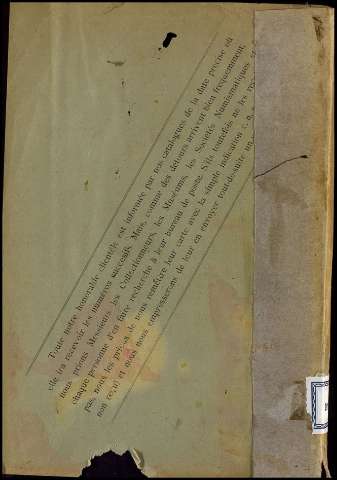 Toute notre honorable clientèle est informée par nos catalogues de la date précise où
elle ira recevoir les numéros successifs. Mais, comme des détours arrivent bien fréquemment,
nous prions Messieurs les Collectionneurs, les Muséums, les Sociétés Numismatiques et
chaque personne d'en faire recherche à leur bureau de poste. S'ils toutefois ne les
pas, nous les prions de nous remettre leur carte avec la simple indication
non reçu) et nous nous empresserons de leur en envoyer tout-de-suite un